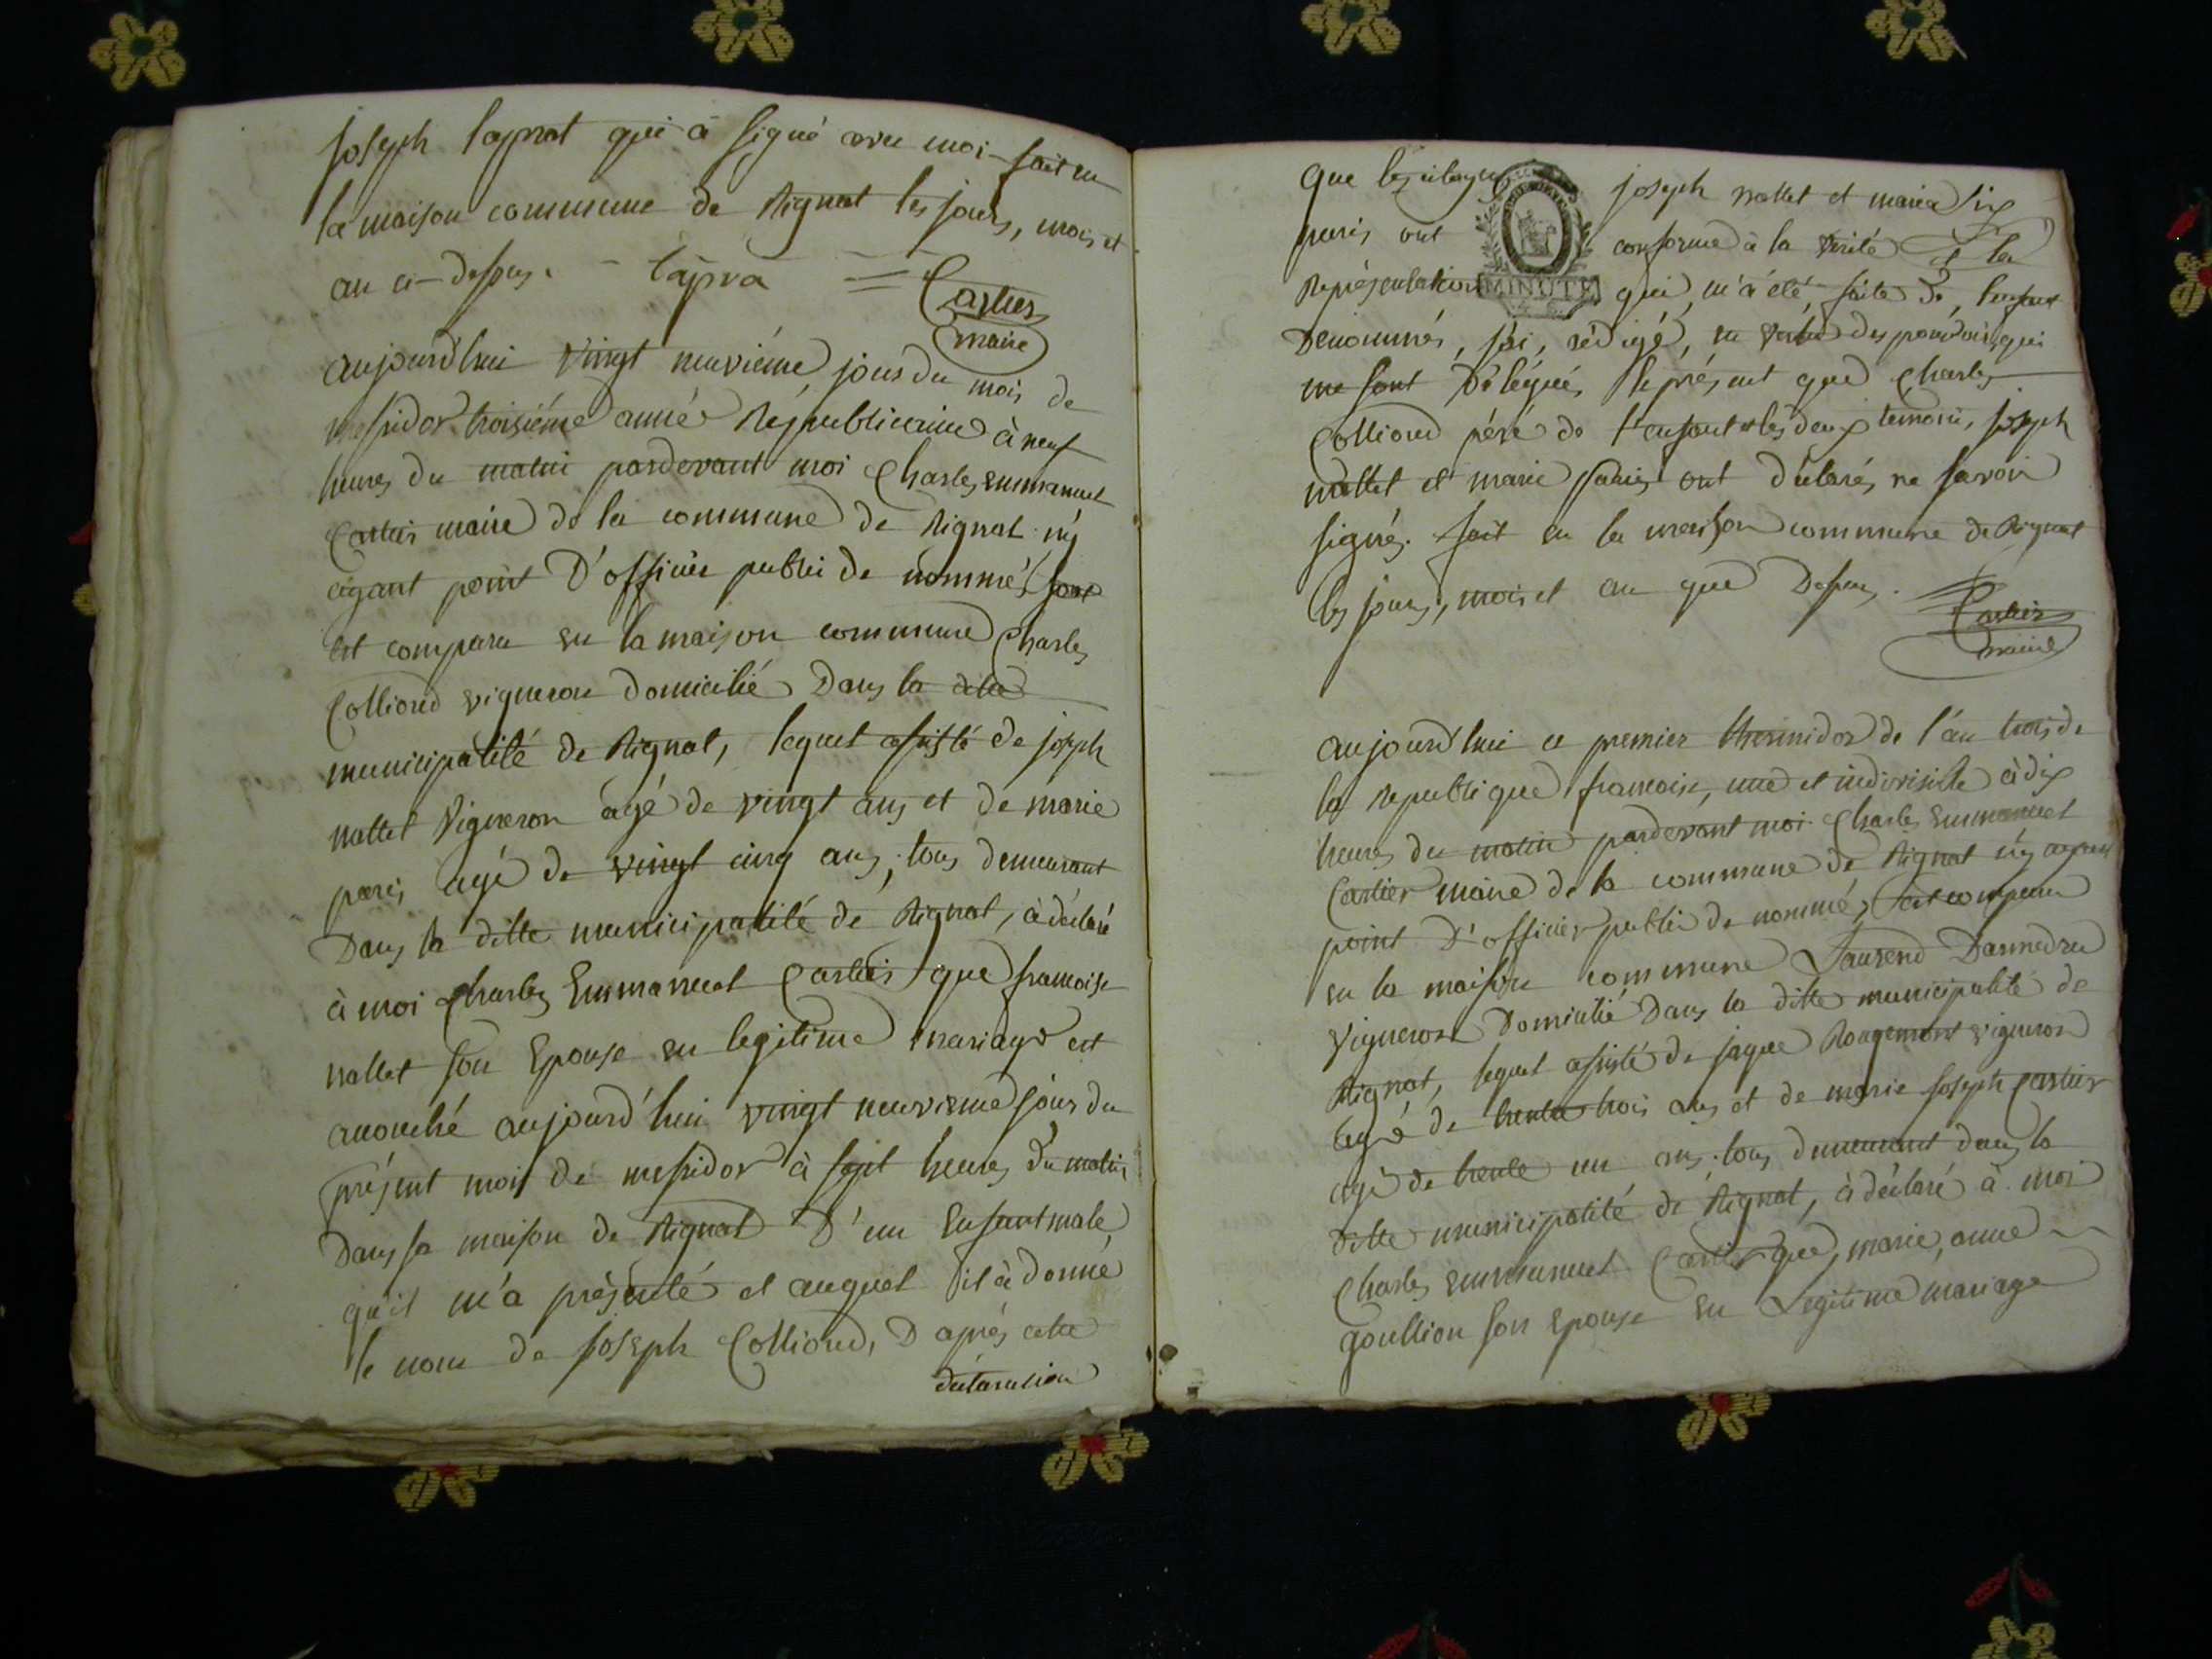 joseph laprat qui à signé avec moi fait en
la maison commune de Rignat les jours, mois et
an ci-dessus. lapra Cartier
maire
aujourd'hui vingt neuviéme jour du mois de
messidor troisiéme année Républicaine à neuf
heures du matin pardevant moi Charles emmanuel
Cartier maire de la commune de Rignat n'y
ayant point D'officier public de nommé
est comparu en la maison commune Charles
Colliond vigneron domicilié Dans la ditte
municipalité de Rignat, lequel assisté de joseph
nallet vigneron agé de vingt ans et de marie
paris agé de vingt cinq ans, tous demeurant
Dans la ditte municipalité de Rignat, à déclaré
à moi Charles Emmanuel Cartier que francoise
nallet son Epouse en legitime mariage est
accouché aujourd'hui vingt neuvieme jour du
présent mois de messidor à sept heures du matin
Dans sa maison de Rignat D'un Enfant male,
qu'il m'a présenté et auquel il à donné
le nom de joseph Colliond, D'aprés cette
déclaration
que les citoyens joseph nallet et marie
paris ont conforme à la verité et la
Représentation MINUTE qui m'a été faite de l'enfant
Denommés, j'ai rédigé, en vertu des pouvoirs qui
me sont Délégués le présent que Charles
Colliond pére de l'enfant et les deux temoins, joseph
nallet et marie paris ont déclarés ne savoir
signés. fait en la maison commune de Rignat
les jours, mois et an que Dessus. Cartier
maire
aujourd'hui ce premier thermidor de l'an trois de
la Republique francoise, une et indivisible à dix
heures du matin pardevant moi Charles emmanuel
Cartier maire de la commune de Rignat n'y ayant
point D'officier public de nommé, est comparu
en la maison commune Laurend
vigneron Domicilié Dans la ditte municipalité de
Rignat, lequel assisté de jaque Rougemont vigneron
agé de trente trois ans et de marie joseph Cartier
agé de trente un ans, tous demeurant dans la
ditte municipalité de Rignat, à déclaré à moi
Charles emmanuel Cartier que, marie, anne
goullion son epouse en Legitime mariage